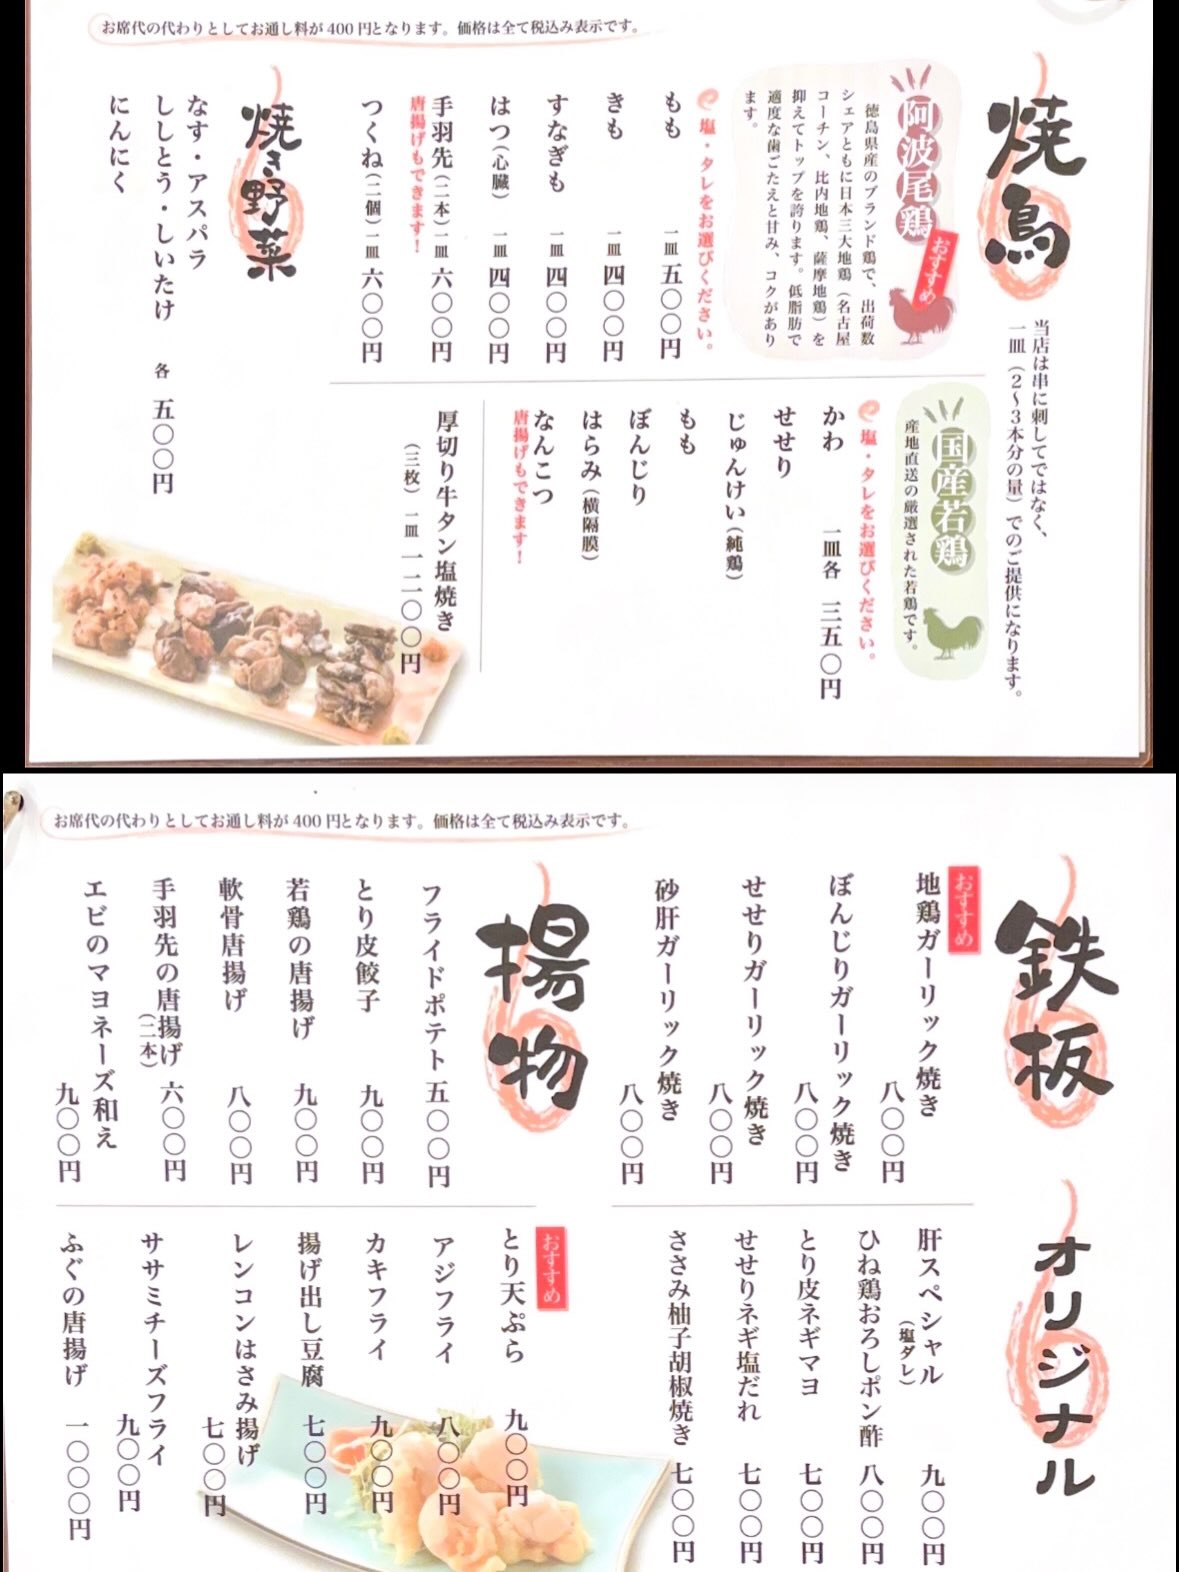 お席代の代わりとしてお通し料が400円となります。価格は全て税込み表示です。
焼鳥
当店は串に刺してではなく、
一皿（2〜3本分の量）でのご提供になります。
阿波尾鶏
おすすめ
徳島県産のブランド鶏で、出荷数
シェアともに日本三大地鶏（名古屋
コーチン、比内地鶏、薩摩地鶏）を
抑えてトップを誇ります。低脂肪で
適度な歯ごたえと甘み、コクがあり
ます。
塩・タレをお選びください。
もも 一皿 五〇〇円
きも 一皿 四〇〇円
すなぎも 一皿 四〇〇円
はつ（心臓） 一皿 四〇〇円
手羽先（二本） 一皿 六〇〇円
唐揚げもできます！
つくね（二個） 一皿 六〇〇円
国産若鶏
産地直送の厳選された若鶏です。
塩・タレをお選びください。
かわ 一皿各 三五〇円
せせり
じゅんけい（純鶏）
もも
ぼんじり
はらみ（横隔膜）
なんこつ
唐揚げもできます！
厚切り牛タン塩焼き
（三枚） 一皿 一二〇〇円
焼き野菜
なす・アスパラ
ししとう・しいたけ 各 五〇〇円
にんにく
お席代の代わりとしてお通し料が400円となります。価格は全て税込み表示です。
鉄板
おすすめ
地鶏ガーリック焼き
八〇〇円
ぼんじりガーリック焼き
八〇〇円
せせりガーリック焼き
八〇〇円
砂肝ガーリック焼き
八〇〇円
オリジナル
肝スペシャル
（塩タレ） 九〇〇円
ひね鶏おろしポン酢 八〇〇円
とり皮ネギマヨ 七〇〇円
せせりネギ塩だれ 七〇〇円
ささみ柚子胡椒焼き 七〇〇円
揚物
フライドポテト 五〇〇円
とり皮餃子 九〇〇円
若鶏の唐揚げ 九〇〇円
軟骨唐揚げ 八〇〇円
手羽先の唐揚げ 六〇〇円
（二本）
エビのマヨネーズ和え
九〇〇円
おすすめ
とり天ぷら 九〇〇円
アジフライ 八〇〇円
カキフライ 九〇〇円
揚げ出し豆腐 七〇〇円
レンコンはさみ揚げ
七〇〇円
ササミチーズフライ
九〇〇円
ふぐの唐揚げ 一〇〇〇円